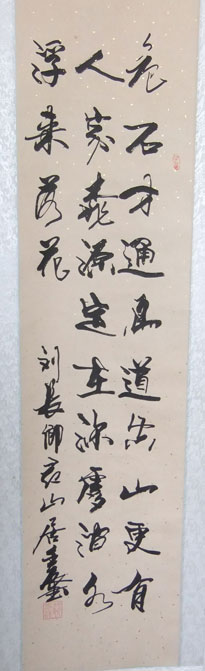 危石才通鸟道空山更有
人家桃源定在深处涧水
浮来落花
刘长卿
山居